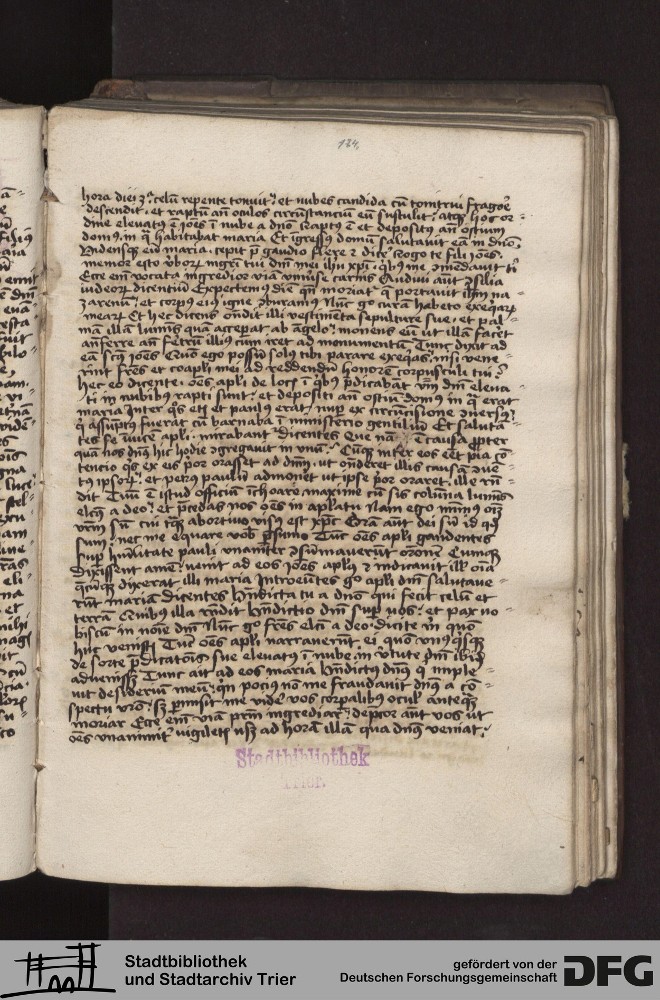 134.
hora diei 3ª celū repente tonuit et nubes candida cū tonitrui fragoē
descendit et raptū an̄ oculos circūstanciū eū sustulit atqʒ hoc or-
dine elevatꝰ ē joēs ī nube a dn̄o raptꝰ ē et depositꝰ an̄ ostium
domꝰ in q̄ habitabat maria Et igressꝰ domū salutavit eā in dn̄o
Vidensqʒ eū maria cepit p̄ gaudio flere ⁊ dice Rogo te fili joēs
memor esto v̄borꝝ mgr̄i tui dn̄i mei ih̄u xp̄i qͥbꝰ me ɔmēdavit tͥ
Ecce em̄ vocata ingredior viā univ̄se carnis Audivi aut̄ ɔsilia
iudeorꝝ dicentiū Expectemꝰ diē qn̄ moriatʳ q̄ portavit ih̄m na
zarenū et corpꝰ eiꝰ igne ɔburamꝰ Nūc g̊ curā habeto exeqͥarꝝ
mearꝝ Et hec dicens on̄dit illi vestimēta sepulture sue et pal-
mā illā luminꝭ quā acceperat ab āgelo monens eū ut illā facēt
anferre an̄ feretrū illiꝰ cum iret ad monumentū Tunc dixit ad
eā scūs joēs Quō ego possū solꝰ tibi parare exeqͥas nisi vene-
rint fr̄es et coapli mei ad reddendū honorē corpusculi tui
hec eo dicente oēs apl̄i de locꝭ ī qͥbꝰ p̄dicabāt v̄bū dn̄i eleva-
ti in nubibꝰ rapti sunt et depositi an̄ ostiū domꝰ in q̄ erat
maria Inter qͦs etꝫ et paulꝰ erat nup̄ ex circūcisione ɔversꝰ
q̄ assūptꝰ fuerat cū barnaba ī ministerio gentiliū Et salutā-
tes se īvice apl̄i mirabantʳ dicentes Que nā ē causa propter
quā nos dn̄s hic hodie ɔgregavit in unū Cūqʒ inter eos eēt pia cō
tencio qͥs ex eis p̄or orasset ad dn̄m ut on̄deret illis causā ɔvē-
tꝰ ipsorꝝ et petrꝰ paulū admonet ut ipse p̄or oraret ille rn̄-
dit Tuū ē istud officiū īchoare maxime cū sis colūna luminꝭ
elcꝰ a deo et p̄cedas nos oēs in aplatu Nam ego minimꝰ oīm
vr̄m sū cui tqͣꝫ abortivo visꝰ est xpūs Grā aut̄ dei sū id qd
sum nec me equare vob̄ p̄sumo Tūc oēs apl̄i gaudentes
sup̄ hūilitate pauli unanit̄ ɔsūmaverūt oronē Cumqʒ
dixissent amē venit ad eos joēs apl̄us ⁊ indicavit illꝭ oīa
q̄cūqʒ dixerat illi maria Introeūtes g̊ apl̄i dm̄ salutave-
rūt mariā dicentes Bn̄dicta tu a dn̄o qui fecit celū et
terrā Quibus illa rn̄dit Bn̄dictio dn̄i sup̄ vos et pax vo-
biscū in noīe dn̄i Nūc g̊ fr̄es elcti a deo dicite m̄ quō
huc venistꝭ Tūc oēs apl̄i narraverūt ei quō unꝰqͥsqʒ
de sorte p̄dicatōnꝭ sue elevatꝰ ī nube in v̄tute dn̄i ibidē
advenissꝫ Tunc ait ad eos maria bn̄dictꝰ dn̄s q̄ imple-
vit desideriū meū qn̄ pociꝰ nō me fraudavit dn̄s a cō-
spectu vr̄o sꝫ p̄misit me vidē vos corpalibꝰ oculꝭ anteqͣꝫ
moriar Ecce em̄ viā prīm ingrediar dep̄cor aut̄ vos ut
oēs unanimit̄ vigiletꝭ usqʒ ad horā illā qua dn̄s veniat
Stadtbibliothek
Trier.
Stadtbibliothek
und Stadtarchiv Trier
gefördert von der
Deutschen Forschungsgemeinschaft
DFG